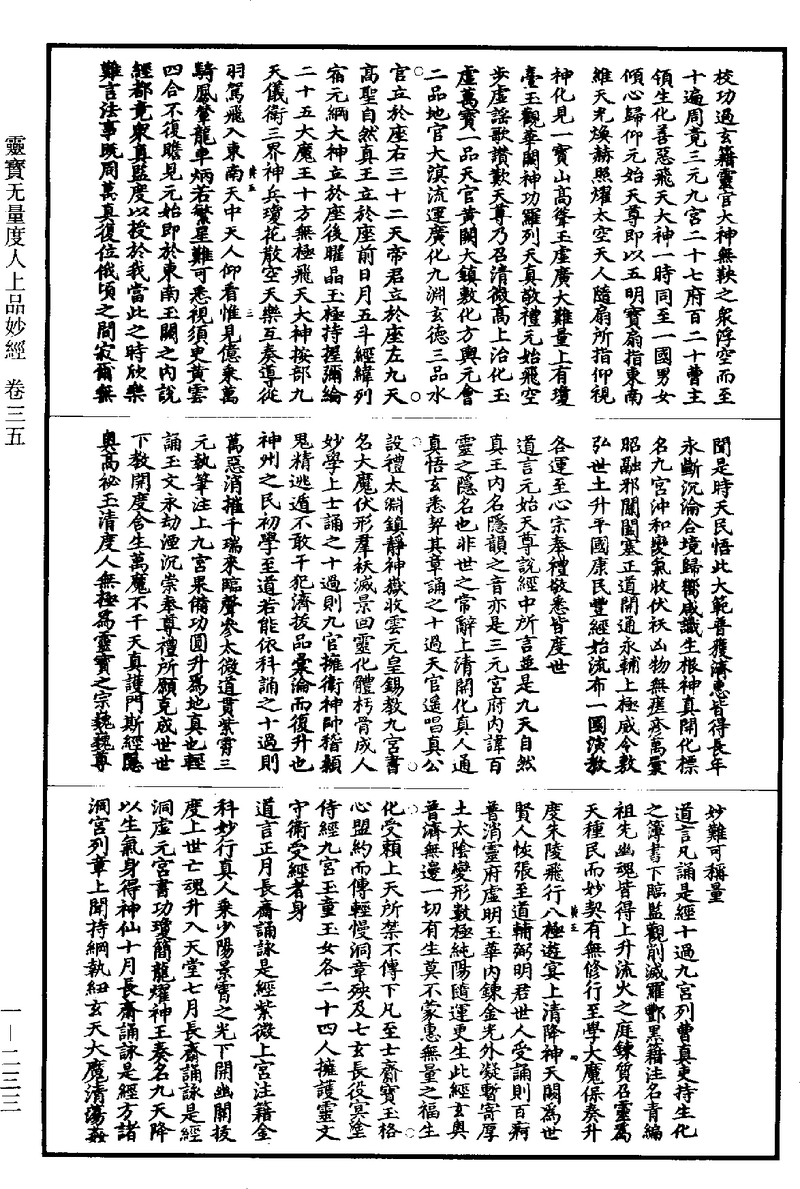 校功過玄籍靈官大神無鞅之衆浮空而至
十遍周竟三元九宮二十七府百二十曹主
領生化善惡飛天大神一時同至一國男女
傾心歸仰元始天尊即以五明寶扇指東南
維天光煥赫照耀太空天人隨扇所指仰視
神化見一寶山高聳玉虛廣大難量上有瓊
臺玉觀華闕神功羅列天真敬禮元始飛空
步虛謠歌讚歎天尊乃召清微高上治化玉
虛萬寶一品天官黃闕大鎮敷化方輿元會
二品地官大溟流運廣化九淵玄德三品水
官立於座右三十二天帝君立於座左九天
高聖自然真王立於座前日月五斗經緯列
宿元綱大神立於座後曜晶玉極持握彌綸
二十五大魔王十方無極飛天大神按部九
天儀衛三界神兵瓊花散空天樂互奏導從
羽駕飛入東南天中天人仰看惟見億乘萬
騎風輦龍車炳若繁星難可悉視須臾黃雲
四合不復瞻見元始即於東南玉闕之內說
經都竟衆真監度以授於我當此之時欣樂
難言法事既周萬真復位俄頃之間寂爾無
聞是時天民悟此大範普獲濟惠皆得長年
永斷沉淪合境歸嚮咸識生根神真開化標
名九宮沖和變氣收伏袄凶物無瘥疹萬彙
昭融邪闇闔塞正道開通永輔上極咸令教
弘世土升平國康民豐經始流布一國演教
各運至心宗奉禮敬悉皆度世
道言元始天尊說經中所言並是九天自然
真王內名隱韻之音亦是三元宮府內諱百
靈之隱名也非世之常辭上清開化真人通
真悟玄悉契其章誦之十過天官遥唱真公
設禮太淵鎮靜神嶽收雲元皇錫教九宮書
名大魔伏形羣袄滅景回靈化體朽骨成人
妙學上士誦之十過則九官擁衛神帥稽顙
鬼精逃遁不敢干犯濟拔品彙淪而復升也
神州之民初學至道若能依科誦之十過則
萬惡消摧千瑞來臨聲參太微道貫紫霄三
元執筆注上九宮果備功圓升爲地真也輕
誦玉文永劫湮沉崇奉尊禮所願克成世世
下教開度含生萬魔不干天真護門斯經隱
奥高祕玉清度人無極爲靈寶之宗巍巍尊
妙難可稱量
道言凡誦是經十過九宮列曹真吏持生化
之簿書下臨監觀削滅羅酆黑籍注名青編
祖先幽魂皆得上升流火之庭鍊質召靈爲
天種民而妙契有無修行至學大魔保奏升
度朱陵飛行八極遊宴上清降神天闕爲世
賢人恢張至道輔弼明君世人受誦則百痾
普消靈府虛明玉華內鍊金光外凝暫寄厚
土太陰變形數極純陽隨運更生此經玄奥
普濟無邊一切有生莫不蒙惠無量之福生
化受賴上天所禁不傳下凡至士齋寶玉格
心盟約而傳輕慢洞章殃及七玄長役冥塗
侍經九宮玉童玉女各二十四人擁護靈文
守衛受經者身
道言正月長齋誦詠是經紫微上宮注籍金
科妙行真人乘少陽景霄之光下開幽關拔
度上世亡魂升入天堂七月長齋誦詠是經
洞虛元宮書功瓊簡龍耀神王奏名九天降
以生氣身得神仙十月長齋誦詠是經方諸
洞宮列章上聞持綱執紐玄天大魔清蕩姦
靈寶无量度人上品妙經 卷三五
一—二三三